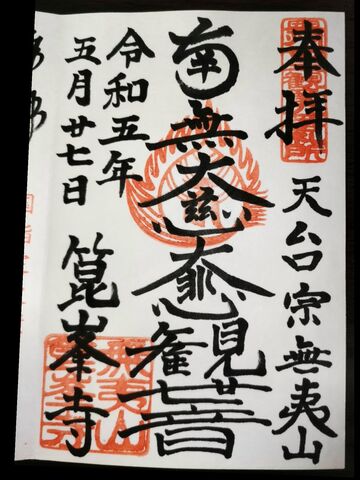 奉拝
天台宗無夷山
南無大慈大悲觀世音
令和五年
五月廿七日
箟峯寺
無夷山
箟峯寺